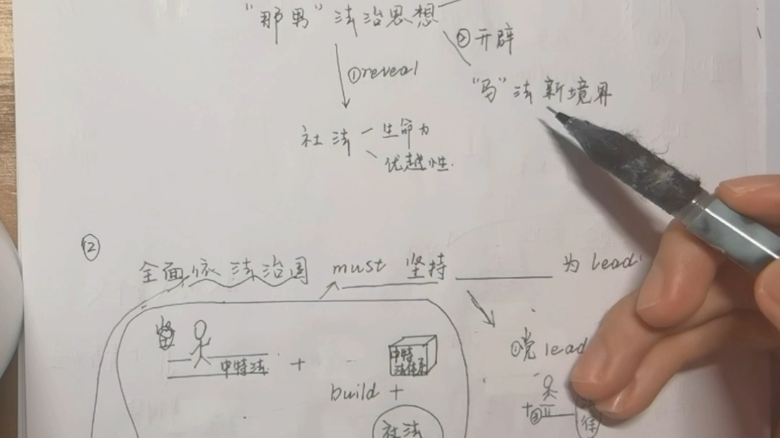 "那男"法治思想
②开辟
①reveal
"马"法新境界
社法
生命力
优越性.
②
全面依法治国 must 坚持 ______ 为 lead.
①党 lead
中特法 +
中特
法体系
build +
社法
+②